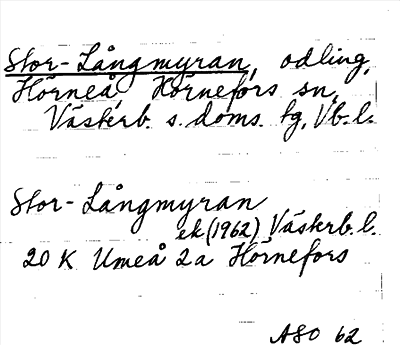 Stor-Långmyran, odling,
Hörneå, Hörnefors sn,
Västerb. s. doms. tg, Vb. l.
Stor-Långmyran
ek (1962) Västerb. l.
20 K Umeå 2a Hörnefors
ASO 62